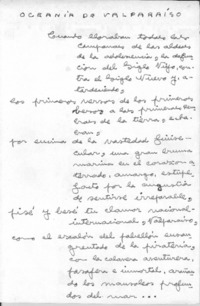 OCEANÍA DE VALPARAÍSO
Cuando lloraban todas las
campanas de las aldeas
de la adolescencia, la defun-
ción del Siglo Viejo, con-
tra el Siglo Nuevo y, a-
terdeciendo,
los primeros versos de los primeros
besos a las primeras
de la tierra,
por encima de la vastedad
cular, una gran bruma
marina en el corazón a-
terrado, amargo, estupe-
facto por la angustia
de sentirse irreparable,
pisé y besé tu clamor nacional-
internacional, Valparaíso,
como el escalón del pabellón ensan-
grentado de la piratería,
con la calavera aventurera,
pasajera e inmortal, araña
de los mausoleos profun-
dos del mar...